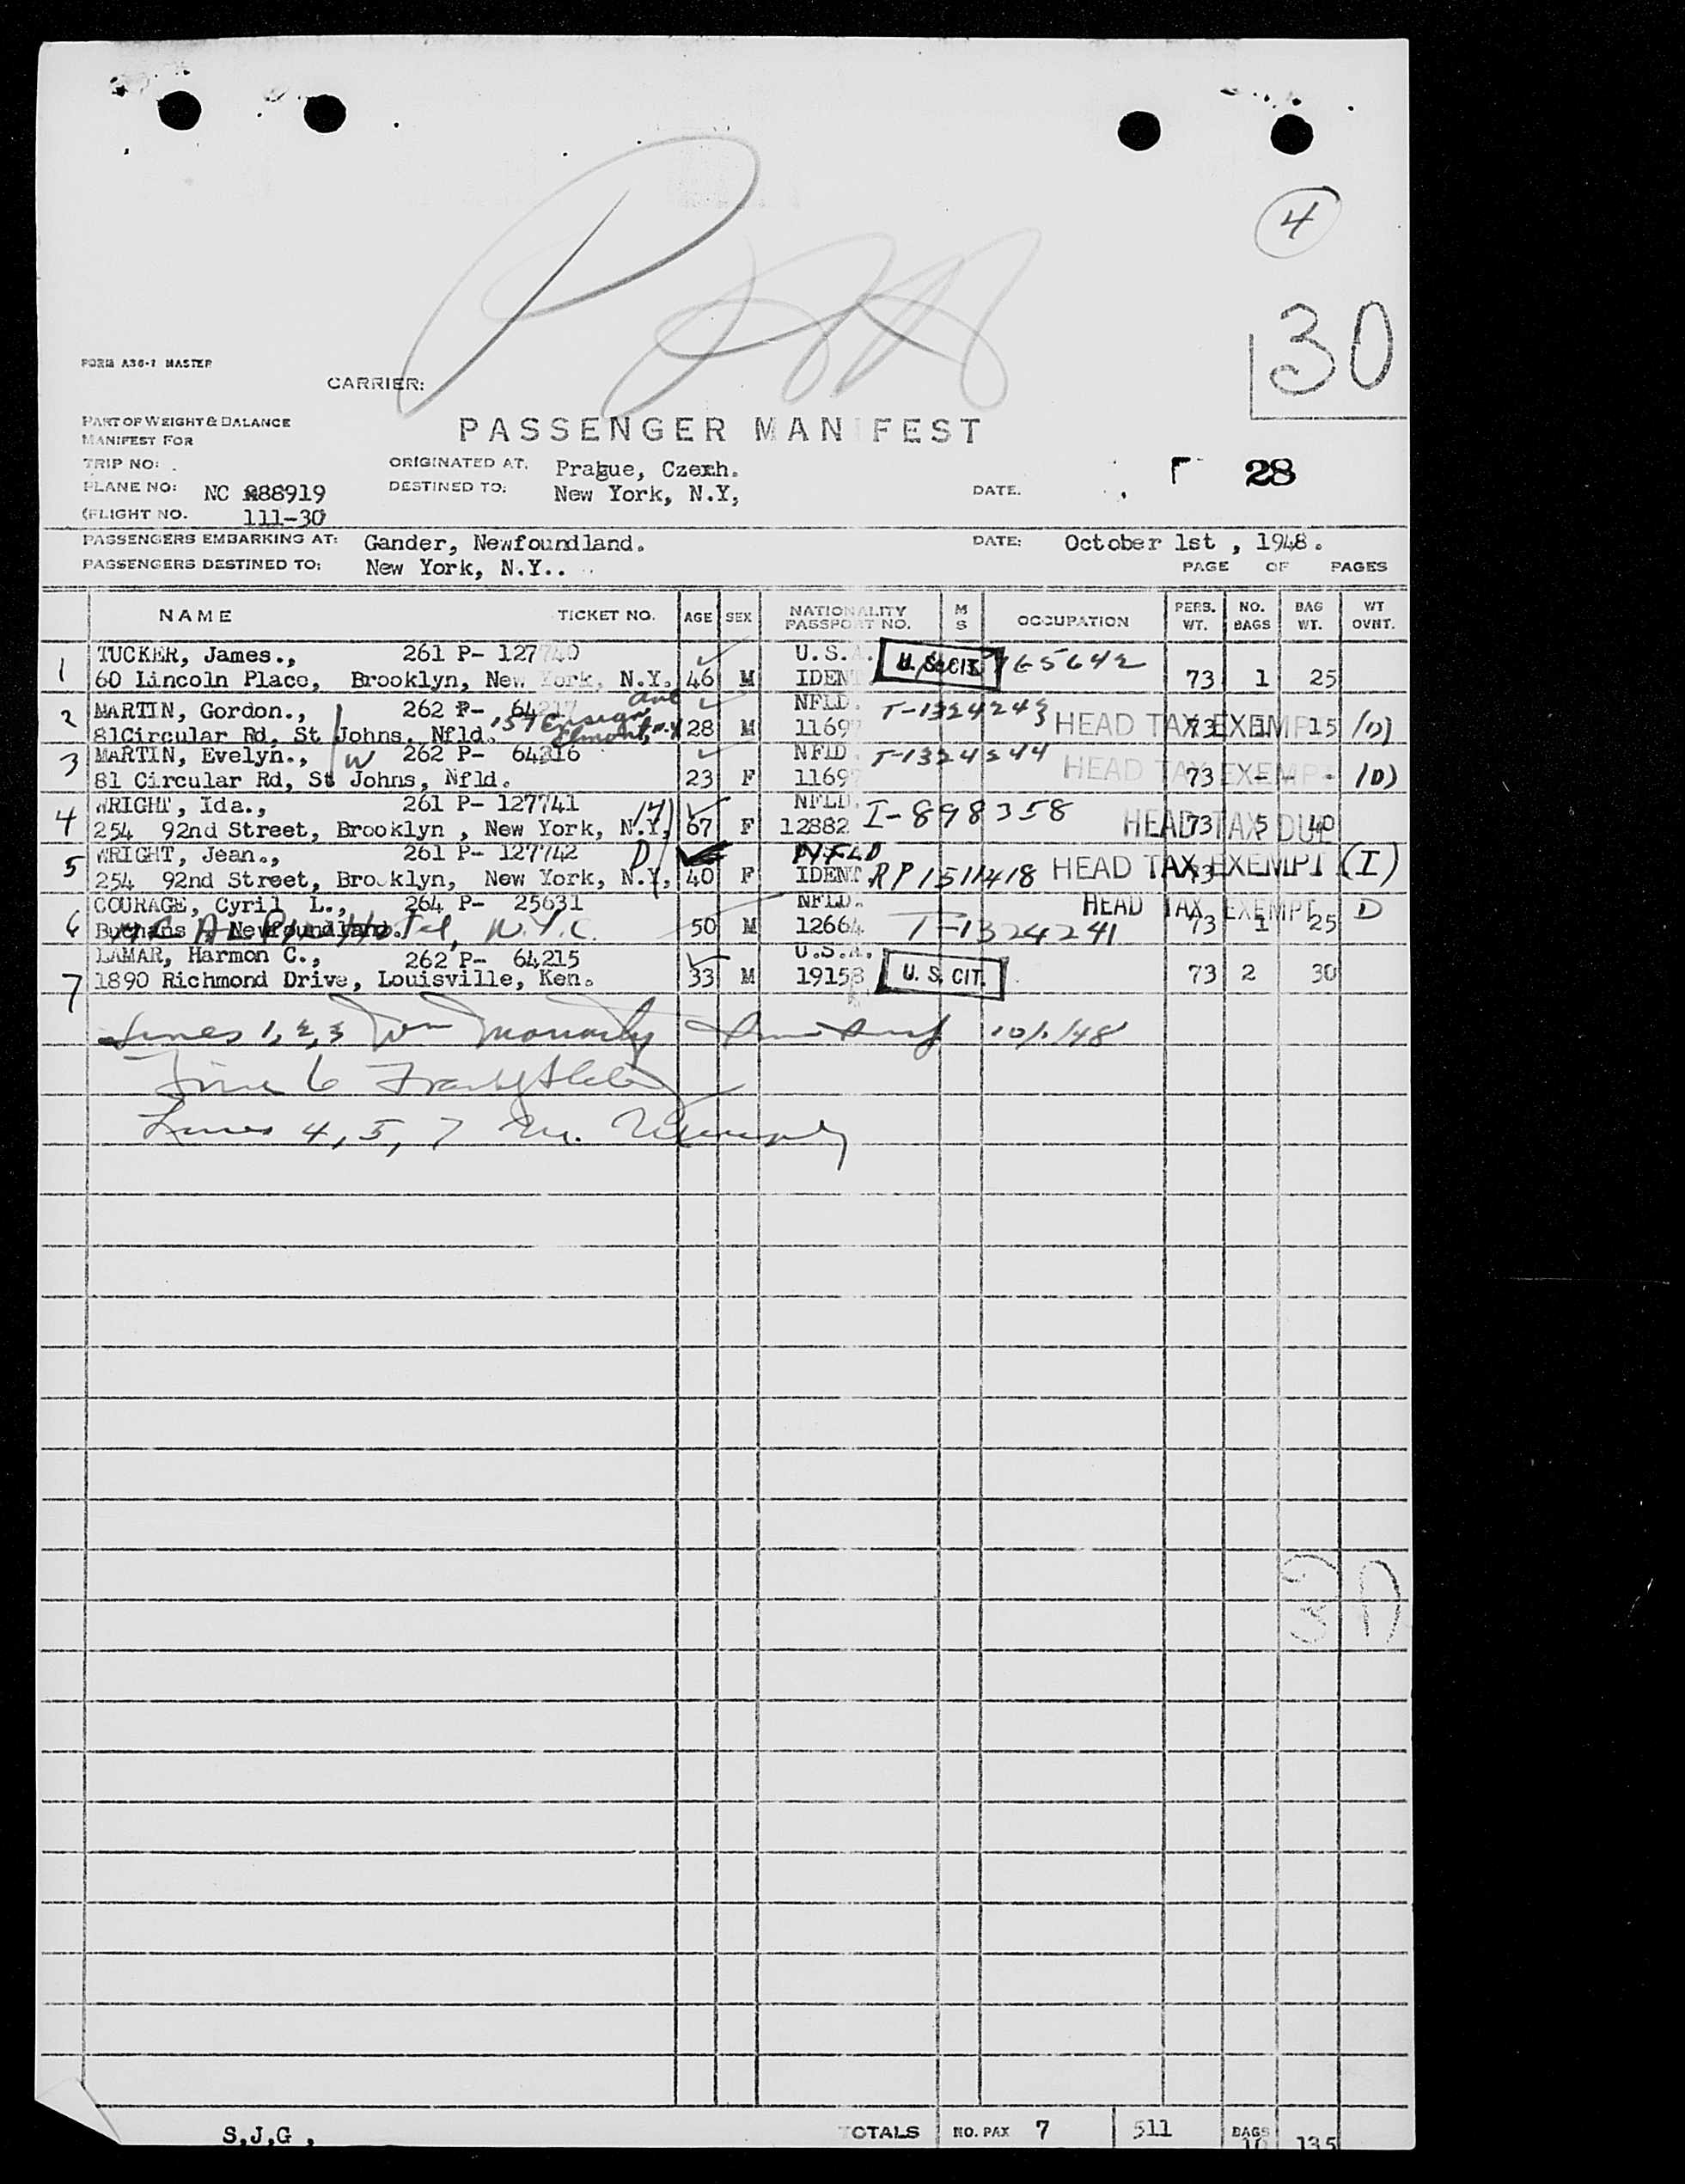 4
30
FORM A36-1 MASTER
CARRIER:
PART OF WEIGHT & BALANCE
MANIFEST FOR
PASSENGER MANIFEST
TRIP NO:
ORIGINATED AT. Prague, Czech.
28
PLANE NO: NC 88919
DESTINED TO: New York, N.Y,
DATE.
(FLIGHT NO. 111-30
PASSENGERS EMBARKING AT: Gander, Newfoundland.
DATE: October 1st , 1948.
PASSENGERS DESTINED TO: New York, N.Y..
PAGE OF PAGES
NAME TICKET NO. AGE SEX NATIONALITY PASSPORT NO. M S OCCUPATION PERS. WT. NO. BAGS BAG WT. WT OVNT.
1 TUCKER, James., 261 P- 127740 U.S.A. U.S. CIT.
60 Lincoln Place, Brooklyn, New York, N.Y, 46 M IDENT 73 1 25
2 MARTIN, Gordon., 262 P- 64217 Ave NFLD. T-1324243 HEAD TAX EXEMPT
81Circular Rd, St Johns, Nfld. 157 Ensign Elmont, N.Y 28 M 11697 73 1 15 (D)
3 MARTIN, Evelyn., W 262 P- 64216 NFLD T-1324244 HEAD TAX EXEMPT
81 Circular Rd, St Johns, Nfld. 23 F 11697 73 - - (D)
4 WRIGHT, Ida., 261 P- 127741 NFLD. I-898358 HEAD TAX DUE
254 92nd Street, Brooklyn , New York, N.Y, 67 F 12882 73 5 40
5 WRIGHT, Jean., 261 P- 127742 D NFLD
254 92nd Street, Brooklyn, New York, N.Y, 40 F IDENT. RP1511418 HEAD TAX EXEMPT 73 (I)
6 COURAGE, Cyril L., 264 P- 25631 NFLD. HEAD TAX EXEMPT D
Buchans Newfoundland. N.Y.C. 50 M 12664 T-1324241 73 1 25
7 LAMAR, Harmon C., 262 P- 64215 U.S.A.
1890 Richmond Drive, Louisville, Ken. 33 M 19158 U. S. CIT. 73 2 30
Lines 1, 2, 3 10/1/48
Line 6
Lines 4, 5, 7
S,J,G , TOTALS NO. PAX 7 511 BAGS 10 135